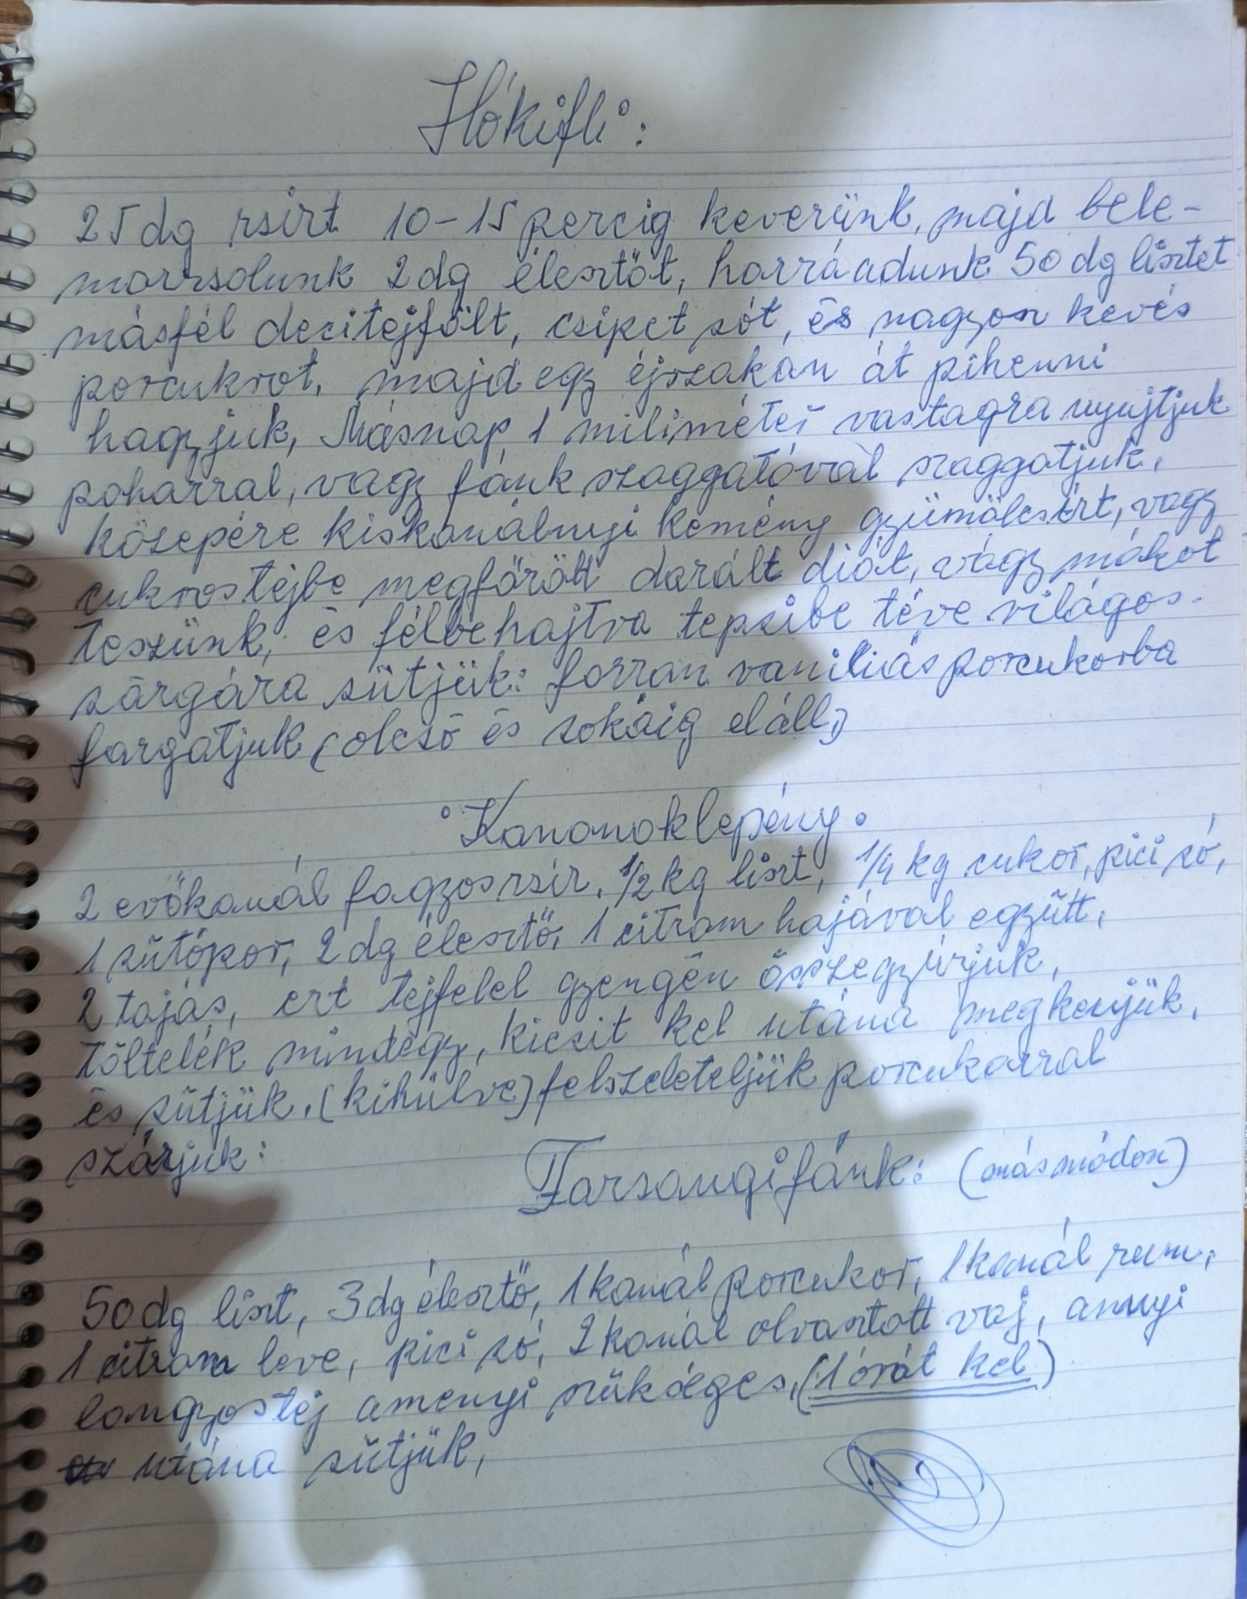 Hókifli:
25 dg zsirt 10-15 percig keverünk, majd bele-
morzsolunk 2 dg élesztőt, hozzáadunk 50 dg lisztet
másfél decitejfölt, csipet sót, és nagyon kevés
porcukrot, majd egy éjszakán át pihenni
hagyjuk, Másnap 1 miliméter vastagra nyujtjuk
pohárral, vagy fánk szaggatóval szaggatjuk,
közepére kiskanálnyi kemény gyümölcsízt, vagy
cukrostejbe megfőzött darált diót, vagy mákot
teszünk, és félbehajtva tepsibe téve világos-
sárgára sütjük: forrón vaniliás porcukorba
forgatjuk (olcsó és sokáig eláll)
Kanonoklepény.
2 evőkanál fagyoszsir, 1/2 kg liszt, 1/4 kg cukor, pici só,
1 sütőpor, 2 dg élesztő, 1 citrom hajával együtt,
2 tojás, ezt tejfelel gyengén összegyúrjuk,
töltelék mindegy, kicsit kel utána megkenjük,
és sütjük. (kihülve) felszeleteljük porcukorral
szórjuk:
Farsangifánk: (másmódon)
50 dg liszt, 3 dg élesztő, 1 kanál porcukor, 1 kanál rum,
1 citrom leve, pici só, 2 kanál olvasztott vaj, annyi
langyostéj amenyi szükséges, (1 órát kel)
utána sütjük,